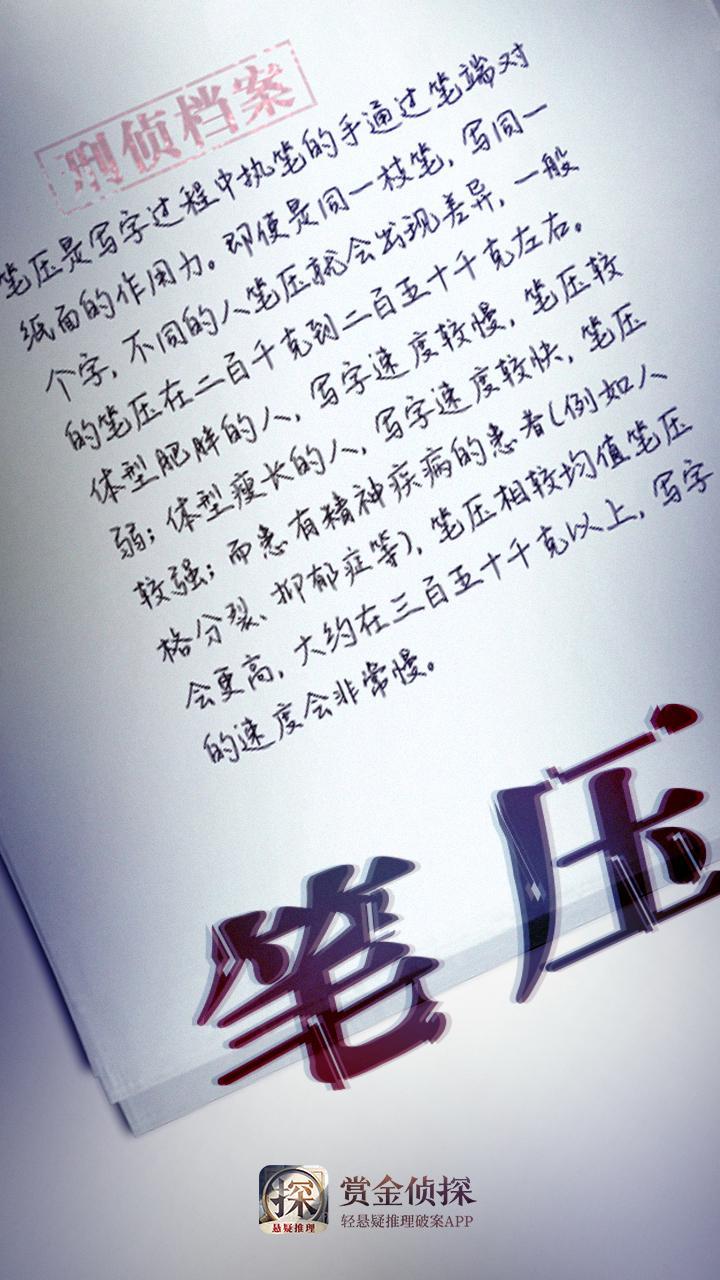 刑侦档案
笔压是写字过程中执笔的手通过笔端对
纸面的作用力。即便是同一枝笔，写同一
个字，不同的人笔压就会出现差异，一般
的笔压在二百千克到二百五十千克左右。
体型肥胖的人，写字速度较慢，笔压较
弱；体型瘦长的人，写字速度较快，笔压
较强；而患有精神疾病的患者（例如人
格分裂、抑郁症等），笔压相较均值笔压
会更高，大约在三百五十千克以上，写字
的速度会非常慢。
笔压
探
悬疑推理
赏金侦探
轻悬疑推理破案APP